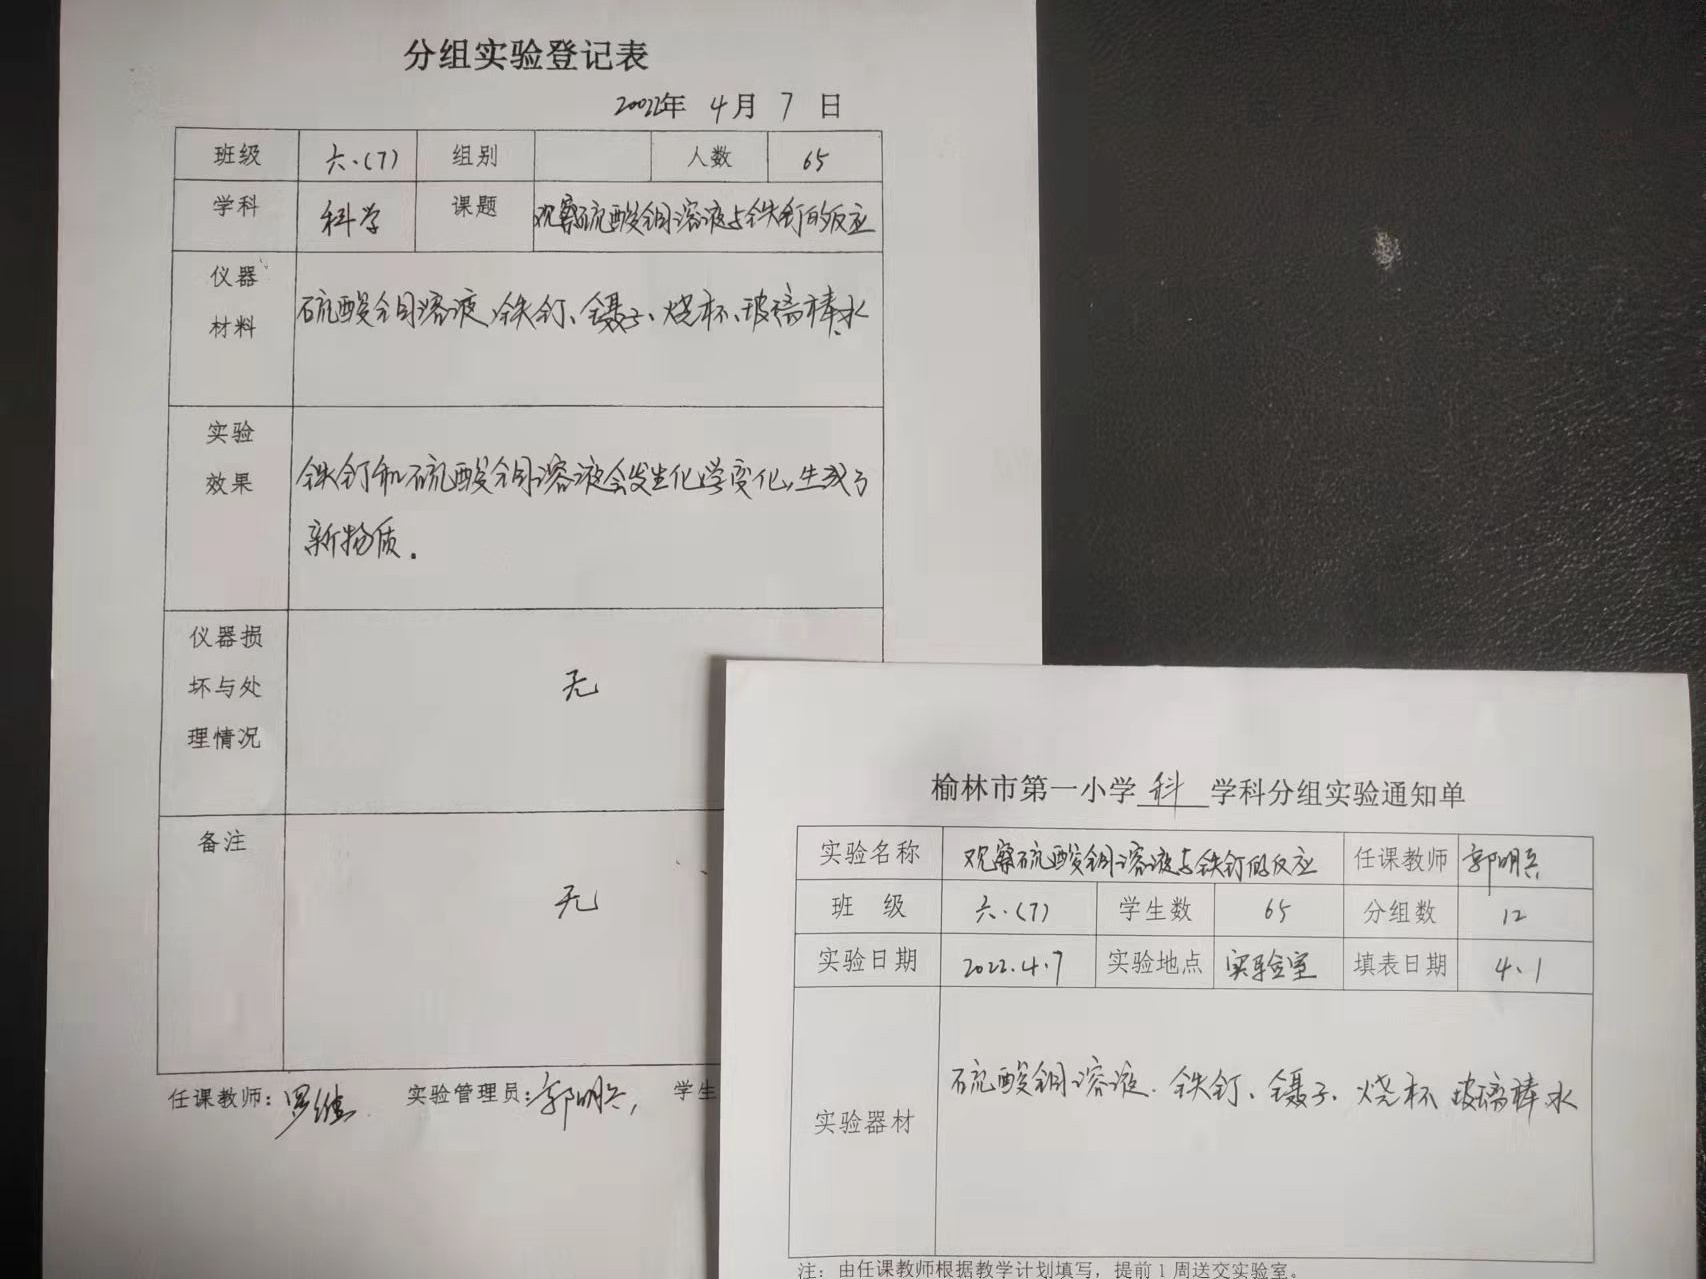 分组实验登记表
2022年 4月 7日
班级 六.(7) 组别 人数 65
学科 科学 课题 观察硫酸铜溶液与铁钉的反应
仪器
材料
硫酸铜溶液、铁钉、镊子、烧杯、玻璃棒、水
实验
效果
铁钉和硫酸铜溶液会发生化学变化,生成了
新物质.
仪器损
坏与处
理情况
无
备注
无
任课教师: 实验管理员:郭明兵 学生
榆林市第一小学 科 学科分组实验通知单
实验名称 观察硫酸铜溶液与铁钉的反应 任课教师 郭明兵
班 级 六.(7) 学生数 65 分组数 12
实验日期 2022.4.7 实验地点 实验室 填表日期 4.1
实验器材
硫酸铜溶液.铁钉、镊子.烧杯 玻璃棒 水
注:由任课教师根据教学计划填写,提前1周送交实验室。